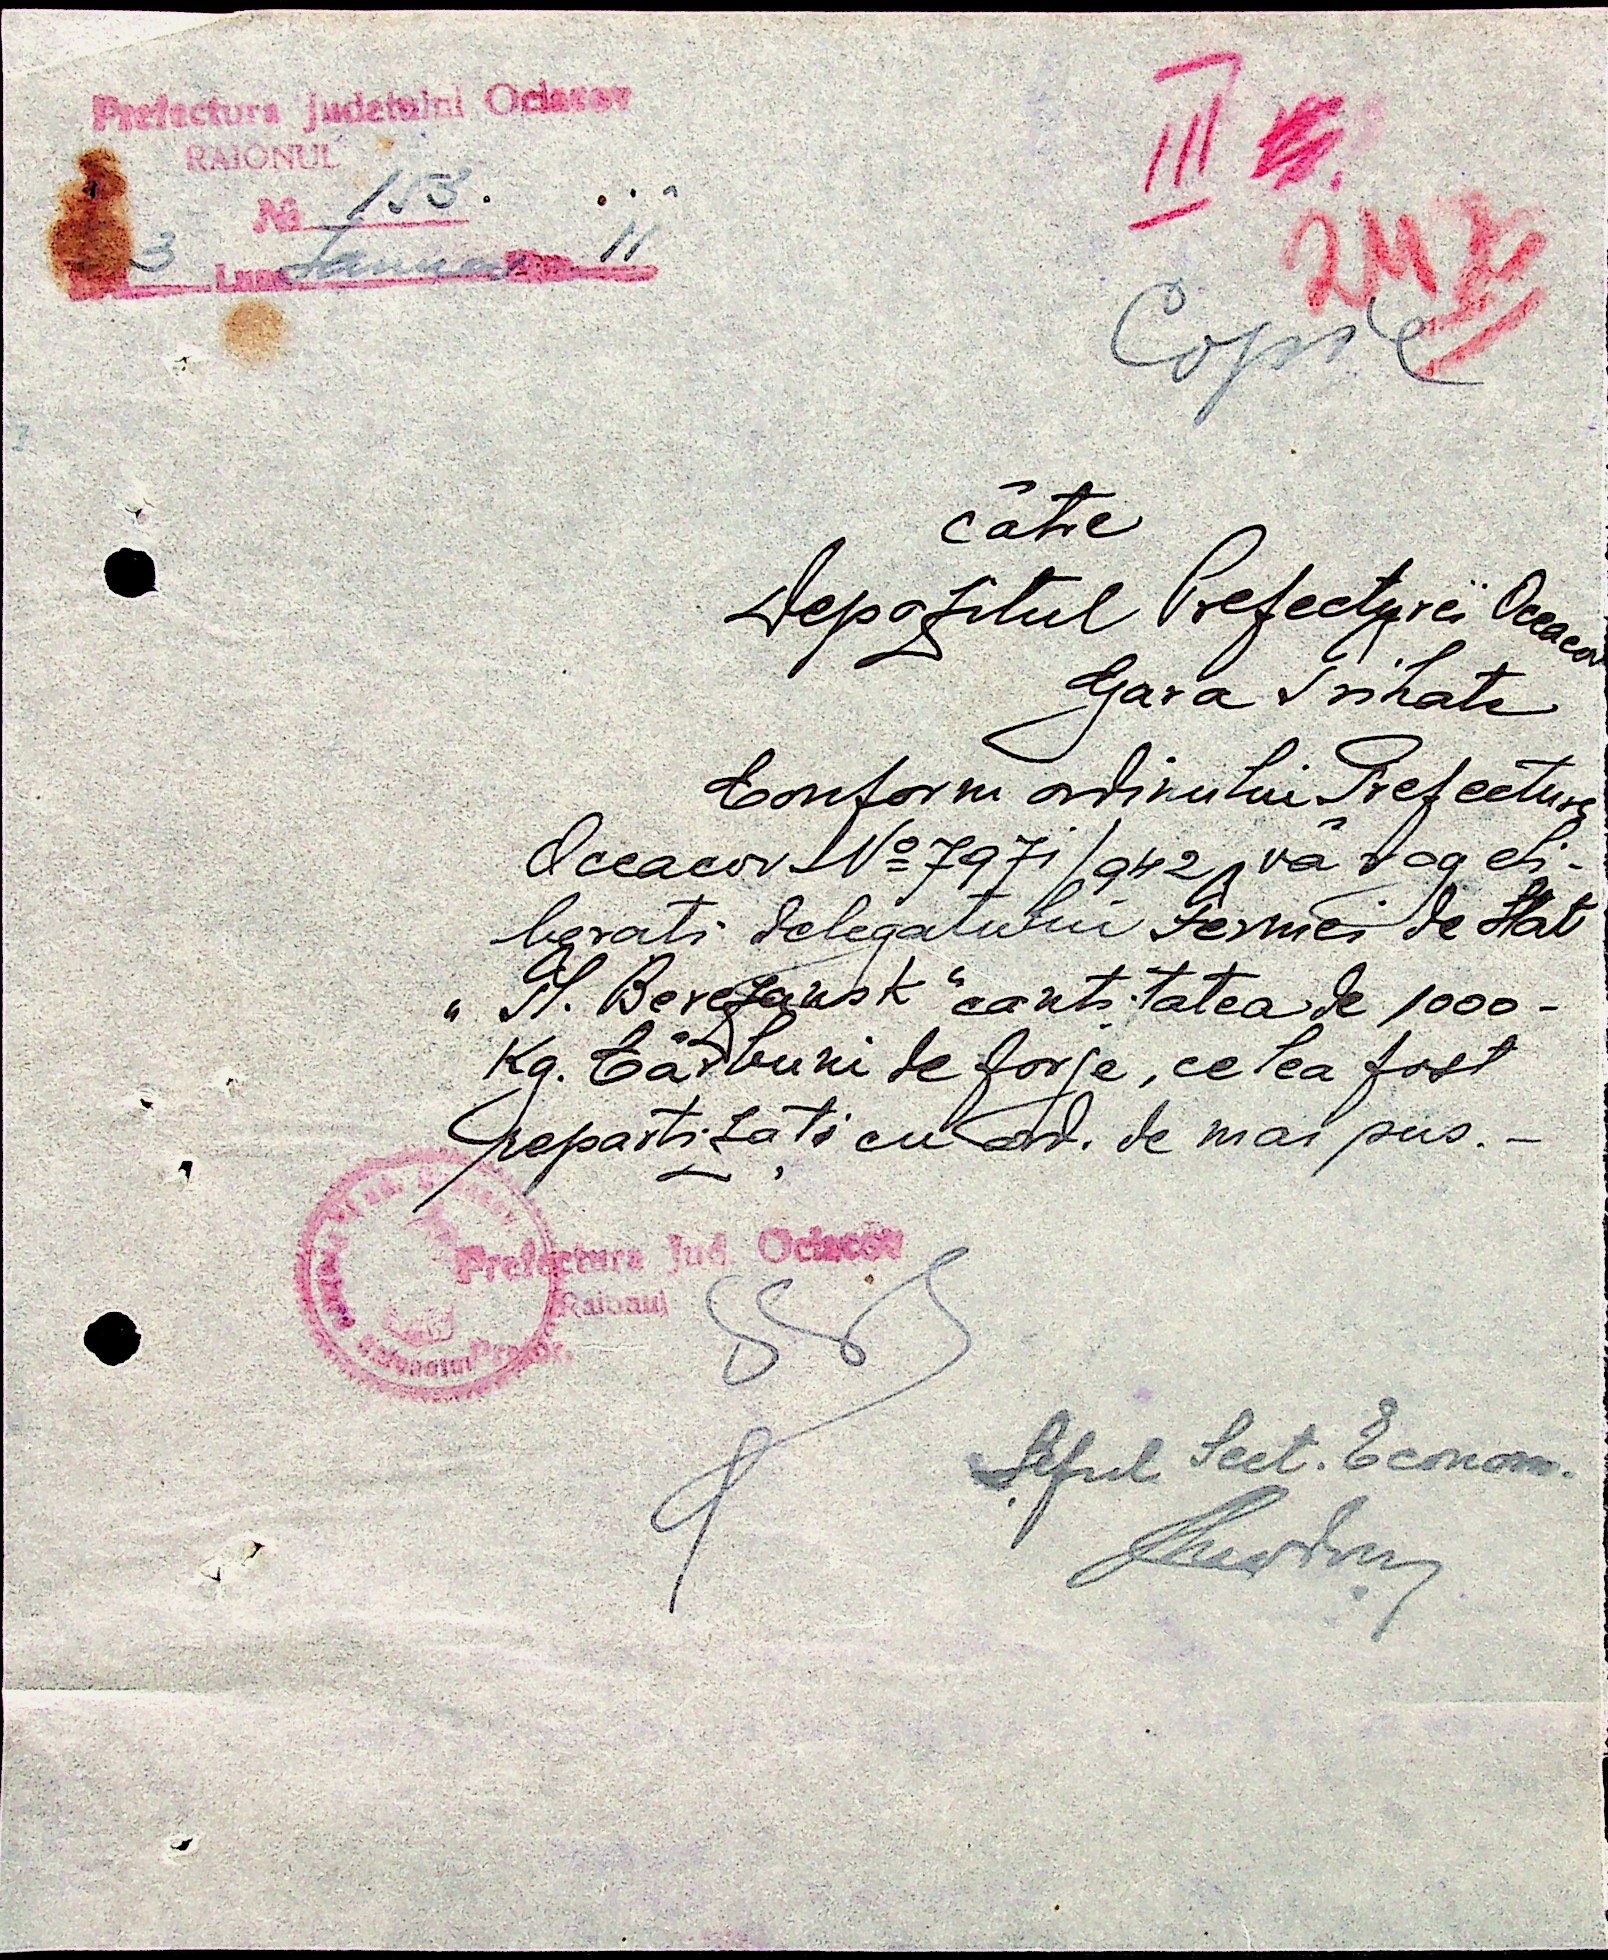 Prefectura judetului Ociacov
RAIONUL
No 153.
3 Luna Ianuar
III
Copie
către
Depozitul Prefecturei Oceacov
Gara Trihate
Conform ordinului Prefecturei
Oceacov No 7971/942, vă rog eli-
berati delegatului Fermei de Stat
„Pl. Berezansk" cantitatea de 1000-
Kg. Cărbuni de forje, ce lea fost
repartizați cu ord. de mai sus. -
Prefectura Jud. Ociacov
Raionul
Pretor,
Șeful Sect. Econom.